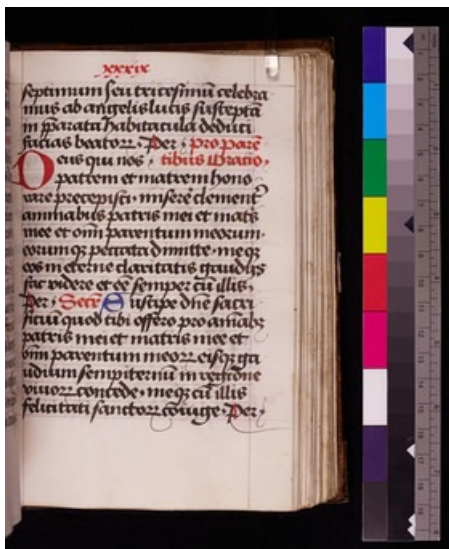 xxxix
septimum seu tricesimū celebra
mus ab angelis lucis susceptā
in p̄parata habitacula deduci
facias beator. Per. pro parē
Deus qui nos. tibus Oracio.
patrem et matrem hono
rare precepisti. miserē clement᷒
animabus patris mei et mat᷒s
mee et om̄ parentum meorum.
eorum q̄ꝫ peccata dimitte. meq̄ꝫ
eos in eterne claritatis gaudijs
fac videre et eē semper cū illis.
Per. Secr̄ Suscipe dn̄e sacri
ficiū quod tibi offero pro aīabꝫ
patris mei et matris mee et
om̄ parentum meoꝝ eisqꝫ ga
udium sempiternū in regione
viuoꝝ concede. meqꝫ cū illis
felicitati sanctoꝝ cōiuge. Per.